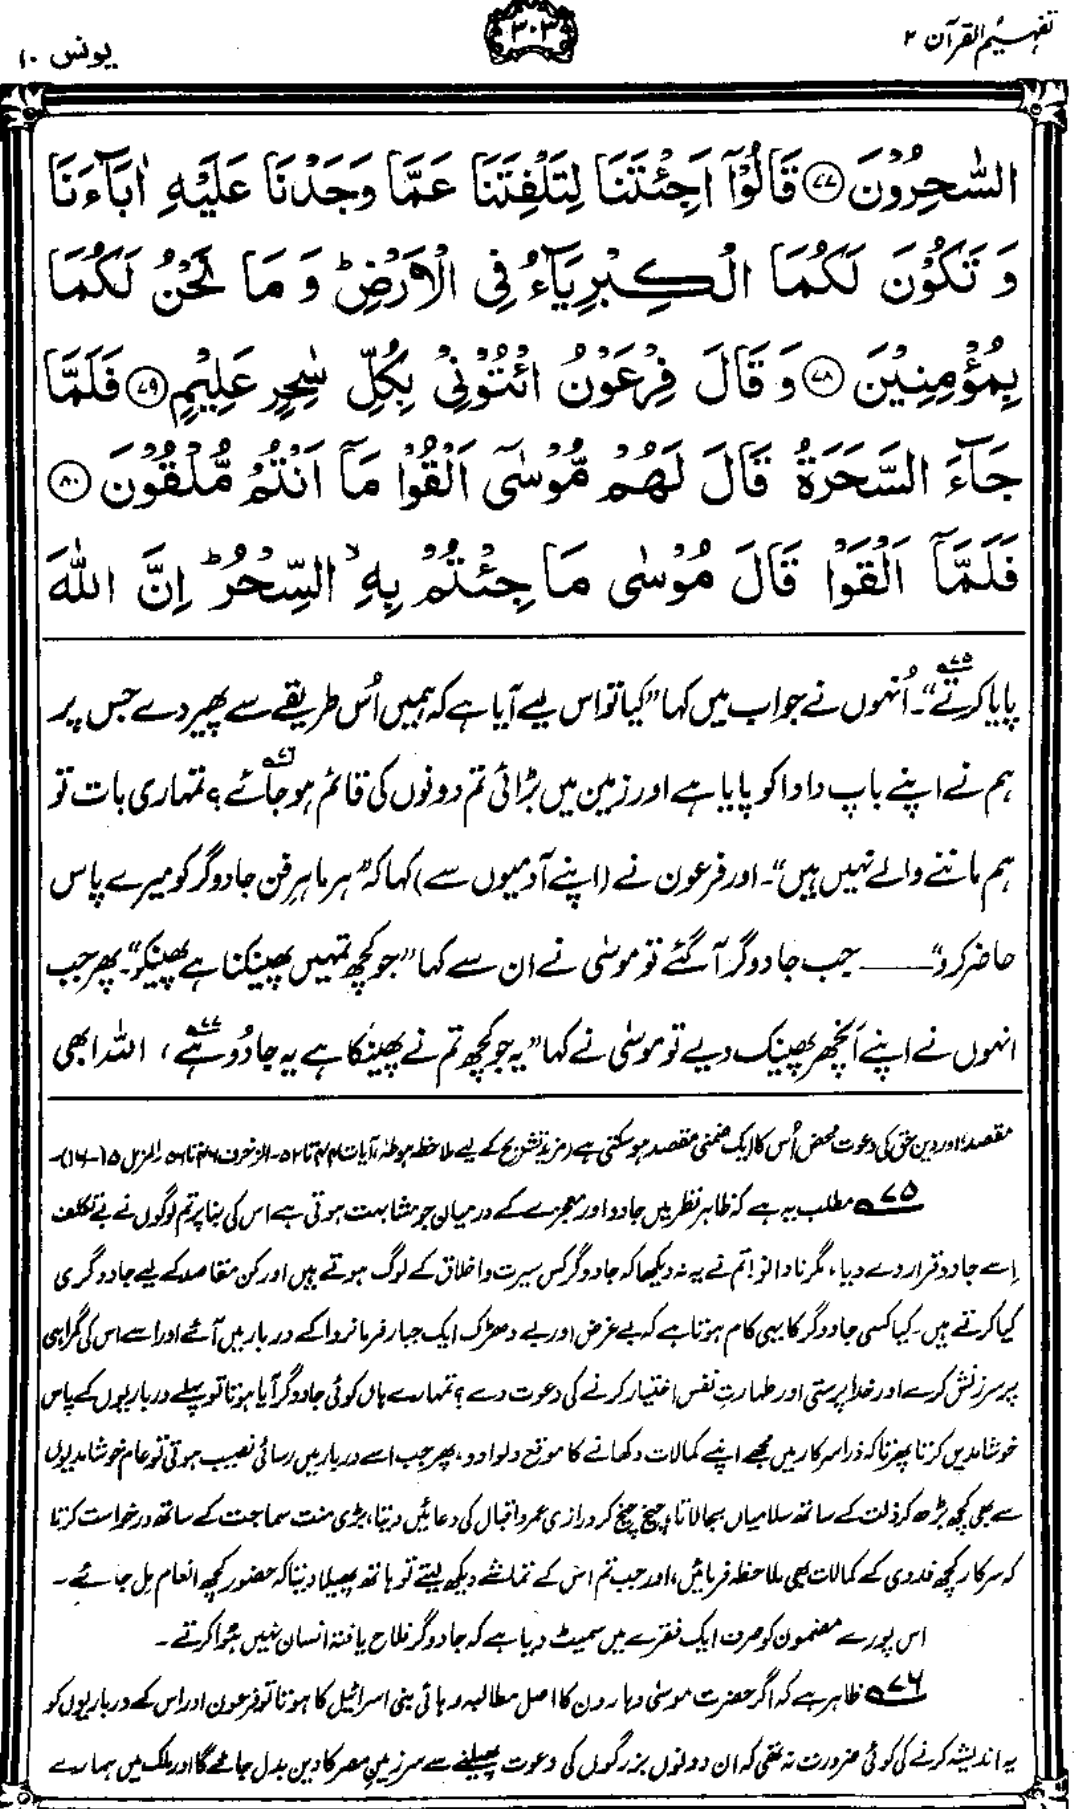 تفہیم القرآن ۲
۳۰۳
یونس ۱۰
السّٰحِرُوْنَ ﴿۷۷﴾ قَالُوْۤا اَجِئْتَنَا لِتَلْفِتَنَا عَمَّا وَجَدْنَا عَلَیْهِ اٰبَآءَنَا
وَ تَكُوْنَ لَكُمَا الْكِبْرِیَآءُ فِی الْاَرْضِ ؕ وَ مَا نَحْنُ لَكُمَا
بِمُؤْمِنِیْنَ ﴿۷۸﴾ وَ قَالَ فِرْعَوْنُ ائْتُوْنِیْ بِكُلِّ سٰحِرٍ عَلِیْمٍ ﴿۷۹﴾ فَلَمَّا
جَآءَ السَّحَرَةُ قَالَ لَهُمْ مُّوْسٰۤی اَلْقُوْا مَاۤ اَنْتُمْ مُّلْقُوْنَ ﴿۸۰﴾
فَلَمَّاۤ اَلْقَوْا قَالَ مُوْسٰی مَا جِئْتُمْ بِهِ ۙ السِّحْرُ ؕ اِنَّ اللّٰهَ
پایا کرتے۷۵“۔ اُنہوں نے جواب میں کہا ”کیا تو اس لیے آیا ہے کہ ہمیں اُس طریقے سے پھیر دے جس پر
ہم نے اپنے باپ دادا کو پایا ہے اور زمین میں بڑائی تم دونوں کی قائم ہو جائے۷۶؟ تمہاری بات تو
ہم ماننے والے نہیں ہیں“۔ اور فرعون نے (اپنے آدمیوں سے) کہا کہ ”ہر ماہرِ فن جادوگر کو میرے پاس
حاضر کرو“ —— جب جادوگر آ گئے تو موسٰی نے ان سے کہا ”جو کچھ تمہیں پھینکنا ہے پھینکو“۔ پھر جب
انہوں نے اپنے اَنچھر پھینک دیے تو موسٰی نے کہا ”یہ جو کچھ تم نے پھینکا ہے یہ جادُو ہے۷۷، اللہ ابھی
مقصد، اور دین حق کی دعوت محض اُس کا ایک ضمنی مقصد ہو سکتی ہے (مزید تشریح کے لیے ملاحظہ ہو طٰہٰ، آیات ۴۴ تا ۵۲۔ الزخرف، ۴۶ تا ۵۶۔ المزمل ۱۵-۱۶)۔
۷۵ مطلب یہ ہے کہ ظاہر نظر میں جادو اور معجزے کے درمیان جو مشابہت ہوتی ہے اس کی بنا پر تم لوگوں نے بے تکلف
اِسے جادو قرار دے دیا، مگر نادانو! تم نے یہ نہ دیکھا کہ جادوگر کس سیرت و اخلاق کے لوگ ہوتے ہیں اور کن مقاصد کے لیے جادوگری
کیا کرتے ہیں۔ کیا کسی جادوگر کا یہی کام ہوتا ہے کہ بے غرض اور بے دھڑک ایک جبار فرمانروا کے دربار میں آئے اور اسے اس کی گمراہی
پر سرزنش کرے اور خدا پرستی اور طہارتِ نفس اختیار کرنے کی دعوت دے؟ تمہارے ہاں کوئی جادوگر آیا ہوتا تو پہلے درباریوں کے پاس
خوشامدیں کرتا پھرتا کہ ذرا سرکار میں مجھے اپنے کمالات دکھانے کا موقع دلوا دو، پھر جب اسے دربار میں رسائی نصیب ہوتی تو عام خوشامدیوں
سے بھی کچھ بڑھ کر ذلت کے ساتھ سلامیاں بجا لاتا، چیخ چیخ کر درازیِ عمر و اقبال کی دعائیں دیتا، بڑی منت سماجت کے ساتھ درخواست کرتا
کہ سرکار کچھ فدوی کے کمالات بھی ملاحظہ فرمائیں، اور جب تم اس کے تماشے دیکھ لیتے تو ہاتھ پھیلا دیتا کہ حضور کچھ انعام مل جائے۔
اس پورے مضمون کو صرف ایک فقرے میں سمیٹ دیا ہے کہ جادوگر فلاح یافتہ انسان نہیں ہوا کرتے۔
۷۶ ظاہر ہے کہ اگر حضرت موسٰی و ہارون کا اصل مطالبہ رہائی بنی اسرائیل کا ہوتا تو فرعون اور اس کے درباریوں کو
یہ اندیشہ کرنے کی کوئی ضرورت نہ تھی کہ ان دونوں بزرگوں کی دعوت پھیلنے سے سرزمینِ مصر کا دین بدل جائے گا اور ملک میں ہمارے